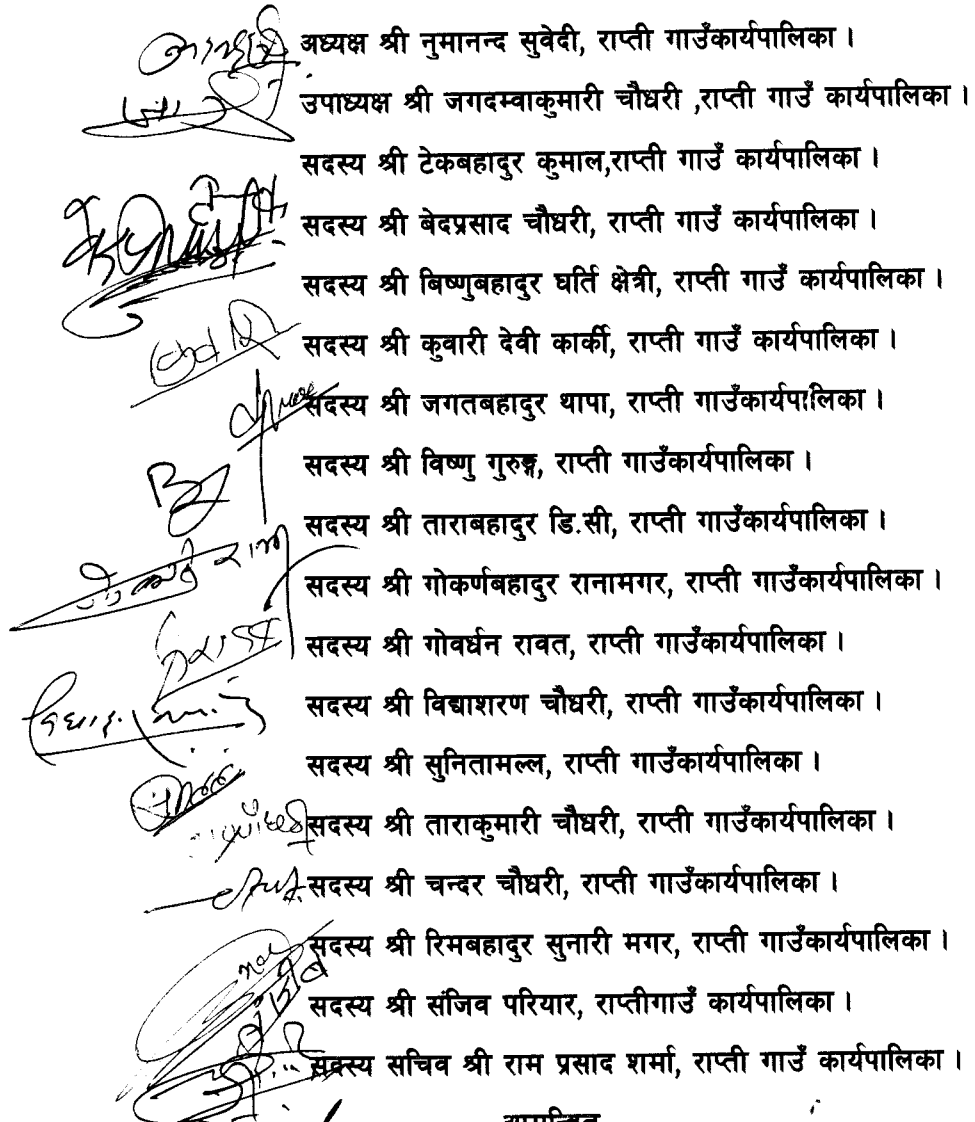 अध्यक्ष श्री नुमानन्द सुवेदी, राप्ती गाउँकार्यपालिका ।
उपाध्यक्ष श्री जगदम्वाकुमारी चौधरी ,राप्ती गाउँ कार्यपालिका ।
सदस्य श्री टेकबहादुर कुमाल,राप्ती गाउँ कार्यपालिका ।
सदस्य श्री बेदप्रसाद चौधरी, राप्ती गाउँ कार्यपालिका ।
सदस्य श्री बिष्णुबहादुर घर्ति क्षेत्री, राप्ती गाउँ कार्यपालिका ।
सदस्य श्री कुवारी देवी कार्की, राप्ती गाउँ कार्यपालिका ।
सदस्य श्री जगतबहादुर थापा, राप्ती गाउँकार्यपालिका ।
सदस्य श्री विष्णु गुरुङ्ग, राप्ती गाउँकार्यपालिका ।
सदस्य श्री ताराबहादुर डि.सी, राप्ती गाउँकार्यपालिका ।
सदस्य श्री गोकर्णबहादुर रानामगर, राप्ती गाउँकार्यपालिका ।
सदस्य श्री गोवर्धन रावत, राप्ती गाउँकार्यपालिका ।
सदस्य श्री विद्याशरण चौधरी, राप्ती गाउँकार्यपालिका ।
सदस्य श्री सुनितामल्ल, राप्ती गाउँकार्यपालिका ।
सदस्य श्री ताराकुमारी चौधरी, राप्ती गाउँकार्यपालिका ।
सदस्य श्री चन्दर चौधरी, राप्ती गाउँकार्यपालिका ।
सदस्य श्री रिमबहादुर सुनारी मगर, राप्ती गाउँकार्यपालिका ।
सदस्य श्री संजिव परियार, राप्तीगाउँ कार्यपालिका ।
सदस्य सचिव श्री राम प्रसाद शर्मा, राप्ती गाउँ कार्यपालिका ।